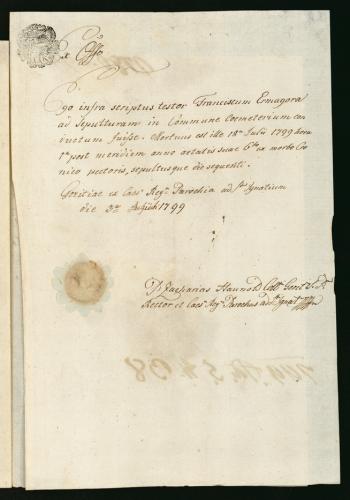 Ego infra scriptus testor Franciscum Ermagora
ad Sepulturam in Commune Coemeterium con
ductum fuisse. Mortuus est ille 18va Julii 1799 hora
1ma post meridiem anno aetatis suae 6to ex morbo Cro
nico pectoris, sepultusque die sequenti.
Goritiae ex Caes. Reg. Parochia ad S. Ignatium
die 1799
Zacharias
Rector et Caes. Reg. Parochus ad S. Ignat.